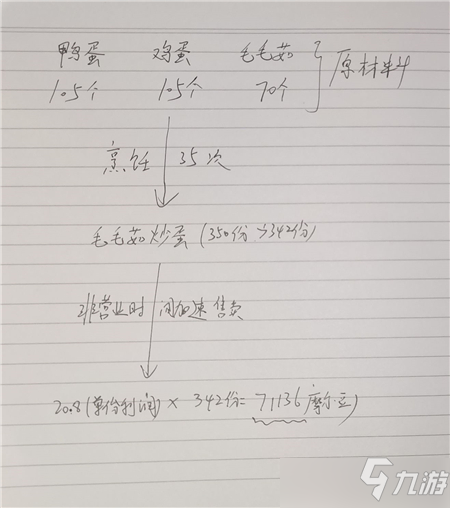 鸭蛋 鸡蛋 毛毛茹 原材料
105个 105个 70个
烹饪 35次
毛毛茹炒蛋 (350份→342份)
非营业时间加速售卖
208(单份利润) × 342份=71136摩尔豆)
九游